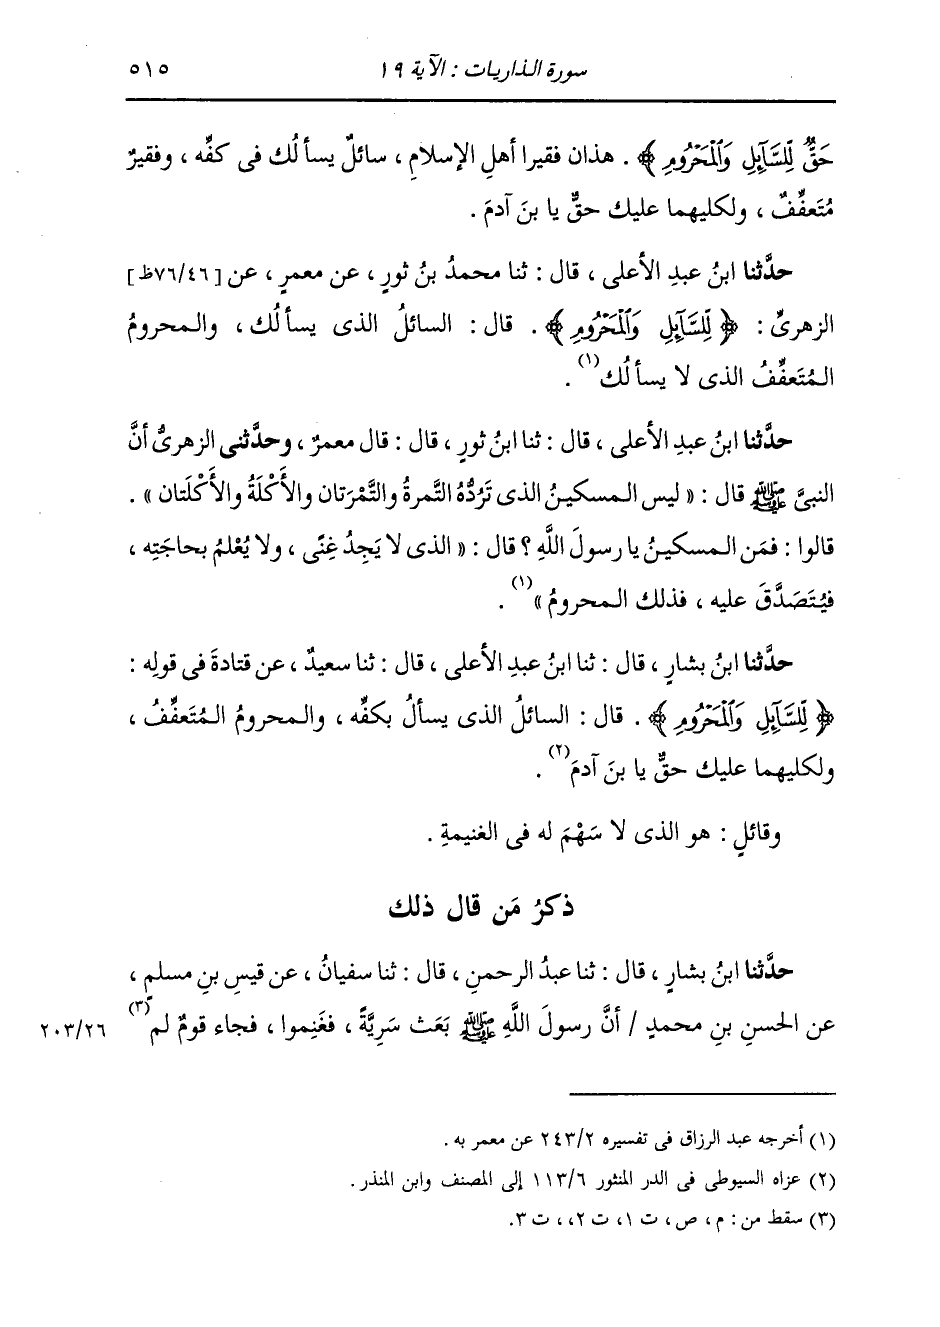 سورة الذاريات : الآية ١٩ ٥١٥
حَقٌّ لِّلسَّآئِلِ وَٱلْمَحْرُومِ ﴾ . هذان فقيرا أهلِ الإسلامِ ، سائلٌ يسألُك فى كفِّه ، وفقيرٌ
مُتَعفِّفٌ ، ولكليهما عليك حقٌّ يا بنَ آدمَ .
حدَّثنا ابنُ عبدِ الأعلى ، قال : ثنا محمدُ بنُ ثورٍ ، عن معمرٍ ، عن [٧٦/٤٦ظ]
الزهرىِّ : ﴿ لِّلسَّآئِلِ وَٱلْمَحْرُومِ ﴾ . قال : السائلُ الذى يسألُك ، والمحرومُ
المُتَعفِّفُ الذى لا يسألُك(١) .
حدَّثنا ابنُ عبدِ الأعلى ، قال : ثنا ابنُ ثورٍ ، قال : قال معمرٌ ، وحدَّثنى الزهرىُّ أنَّ
النبىَّ ﷺ قال : « ليس المسكينُ الذى تَرُدُّهُ التَّمرةُ والتَّمْرَتان والأَكْلَةُ والأَكْلَتان » .
قالوا : فمَن المسكينُ يا رسولَ اللَّهِ ؟ قال : « الذى لا يَجِدُ غِنًى ، ولا يُعْلمُ بحاجَتِه ،
فيُتَصَدَّقَ عليه ، فذلك المحرومُ »(١) .
حدَّثنا ابنُ بشارٍ ، قال : ثنا ابنُ عبدِ الأعلى ، قال : ثنا سعيدٌ ، عن قتادةَ فى قولِه :
﴿ لِّلسَّآئِلِ وَٱلْمَحْرُومِ ﴾ . قال : السائلُ الذى يسألُ بكفِّه ، والمحرومُ المُتَعفِّفُ ،
ولكليهما عليك حقٌّ يا بنَ آدمَ(٢) .
وقائلٍ : هو الذى لا سَهْمَ له فى الغنيمةِ .
ذكرُ مَن قال ذلك
حدَّثنا ابنُ بشارٍ ، قال : ثنا عبدُ الرحمنِ ، قال : ثنا سفيانُ ، عن قيسِ بنِ مسلمٍ ،
عن الحسنِ بنِ محمدٍ / أنَّ رسولَ اللَّهِ ﷺ بَعَث سَرِيَّةً ، فغَنِموا ، فجاء قومٌ لم(٣) ٢٠٣/٢٦
(١) أخرجه عبد الرزاق فى تفسيره ٢٤٣/٢ عن معمر به .
(٢) عزاه السيوطى فى الدر المنثور ١١٣/٦ إلى المصنف وابن المنذر .
(٣) سقط من : م ، ص ، ت ١، ت ٢، ، ت ٣.